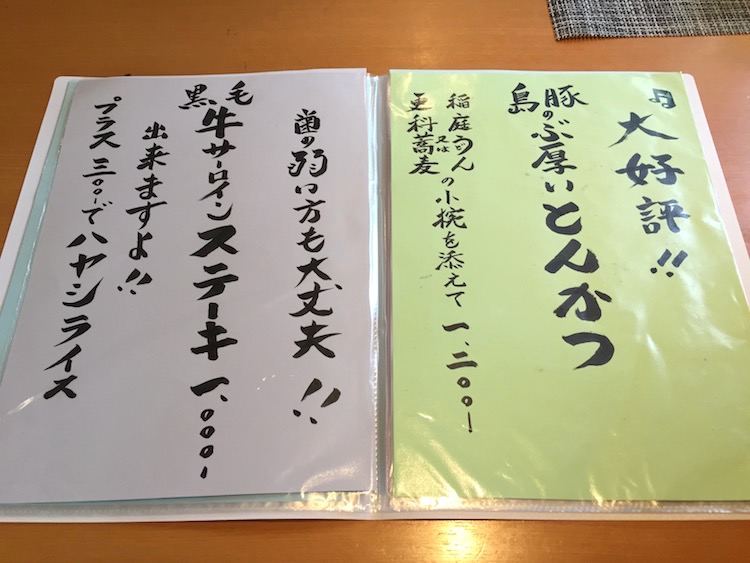 大好評!!
島豚のぶ厚いとんかつ
稲庭うどん又は更科蕎麦の小椀を添えて 一、二〇〇ー
歯の弱い方も大丈夫!!
黒毛牛サーロインステーキ 一、〇〇〇ー
出来ますよ!!
プラス 三〇〇ーでハヤシライス